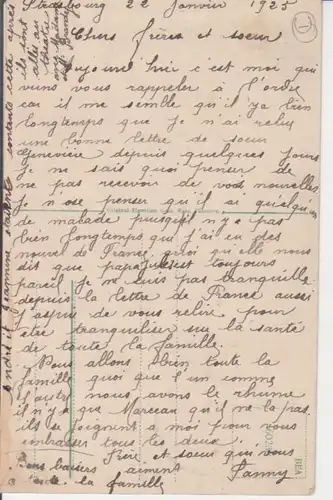 Strasbourg 22 Janvier 1925
Chers frères et soeur
aujourd hui c'est moi qui
viens vous rappeler à l'ordre
car il me semble qu'il y'a bien
longtemps que je n'ai relu
une bonne lettre de soeur
Geneviève depuis quelques jours
je ne sais quoi penser de
ne pas recevoir de vos nouvelles
je n'ose penser qu'il ai quelqu'un
de malade puisqu'il n'y a pas
bien longtemps que j'ai eu des
nouvel de France, quoi qu'elle nous
dit que papa est toujours
pareil je ne suis pas tranquille
depuis la lettre de France aussi
j'aspire de vous relire pour
être tranquiliser sur la santé
de toute la famille.
Nous allons bien toute la
famille quoi que l'un comme
l'autre nous avons le rhume
il n'y a que Marceau qu'il ne l'a pas.
ils se joignent a moi pour vous
embrasser tous les deux.
Frère et soeur qui vous
aiment
Fanny
Bons baisers
a toute la famille
André et Germaine
contents cette après
ils sont
allés au
théâtre
REA